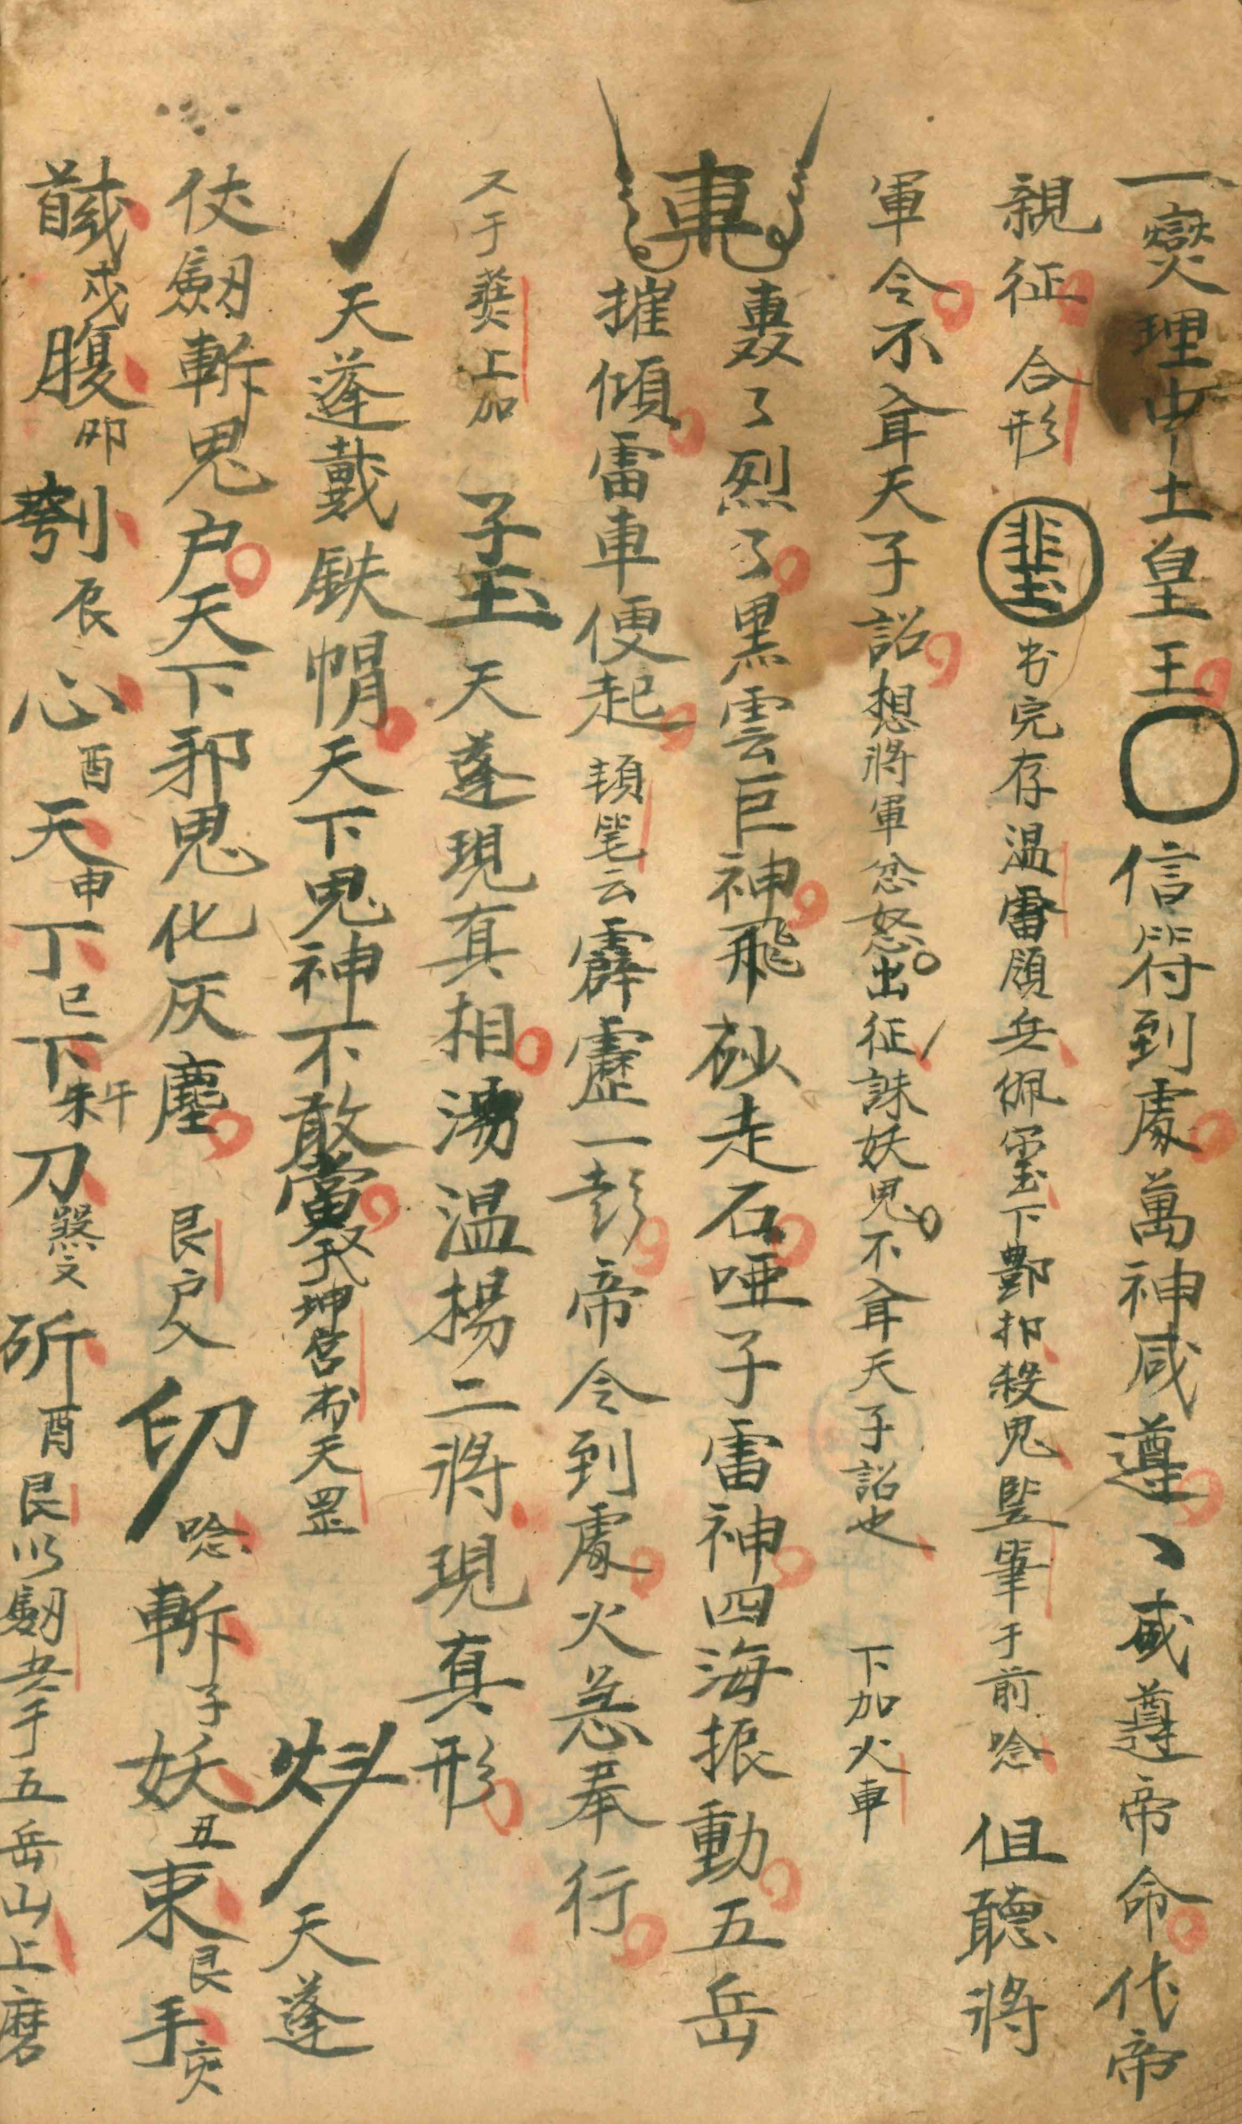 一燮理中土皇王信符到處萬神咸遵、咸遵帝命代帝
親征合形书完存温雷領兵佩下酆都殺鬼竪筆于前唸但聽將
軍令不聞天子詔想將軍忿怒出征誅妖鬼不聞天子詔也下加火車
轟了烈了黑雲巨神飛砂走石啞子雷神四海振動五岳
車摧傾雷車便起頓笔云霹靂一彭帝令到處火急奉行
又于上加天蓬現真相湯温楊二將現真形
天蓬戴鉄帽天下鬼神不敢當又于坤宫书天罡天蓬
仗劔斬鬼户天下邪鬼化灰塵艮户入印唸斬子妖丑束艮手亥
馘戌腹卯刳辰心酉天申丁巳下未午刀煞文斫酉艮以劔于五岳山上磨